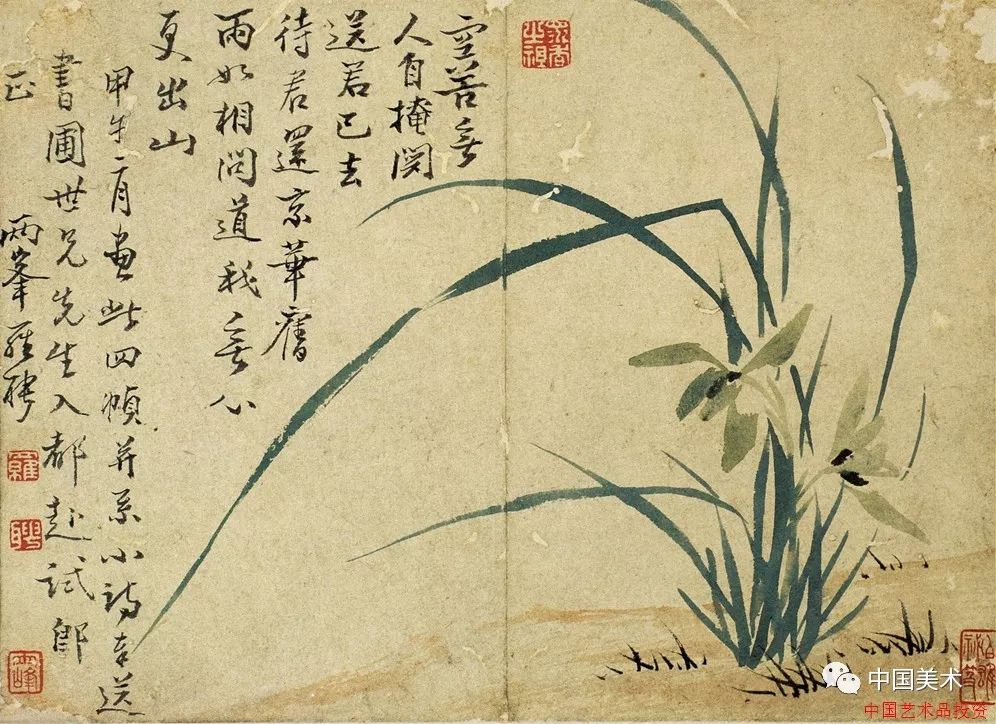 空谷無
人自掩関
送君已去
待君還京華舊
雨如相问道我無心
更出山
甲午二月畫此四幀并系小詩奉送
書圃世兄先生入都赴試即
正
兩峯羅聘
羅
聘
中国美术
中国艺术品投资